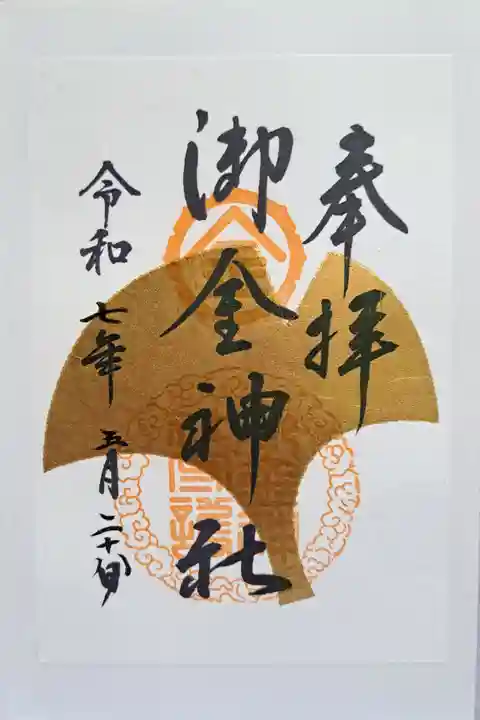 奉拝
御金神社
令和七年五月二十旬